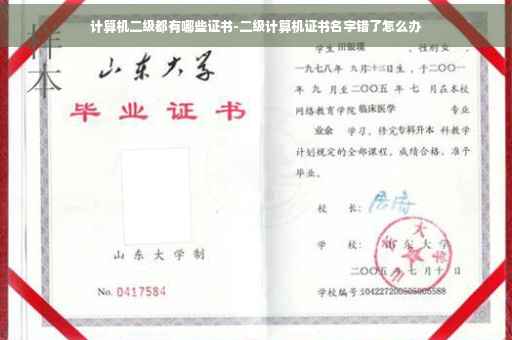 计算机二级都有哪些证书-二级计算机证书名字错了怎么办
样本
山东大学
毕业证书
山东大学制
No. 0417584
学生 田银璞 ,性别 女 ,
一九七八年 九月十三日生,于二〇〇一
年 九 月至二〇〇五 年 七 月在本校
网络教育学院 临床医学 专业
业余 学习,修完专科升本 科教学
计划规定的全部课程,成绩合格,准予
毕业。
校 长:
学 校: 山东大学
二〇〇五 年 七 月 十 日
学校编号:104227200505005588